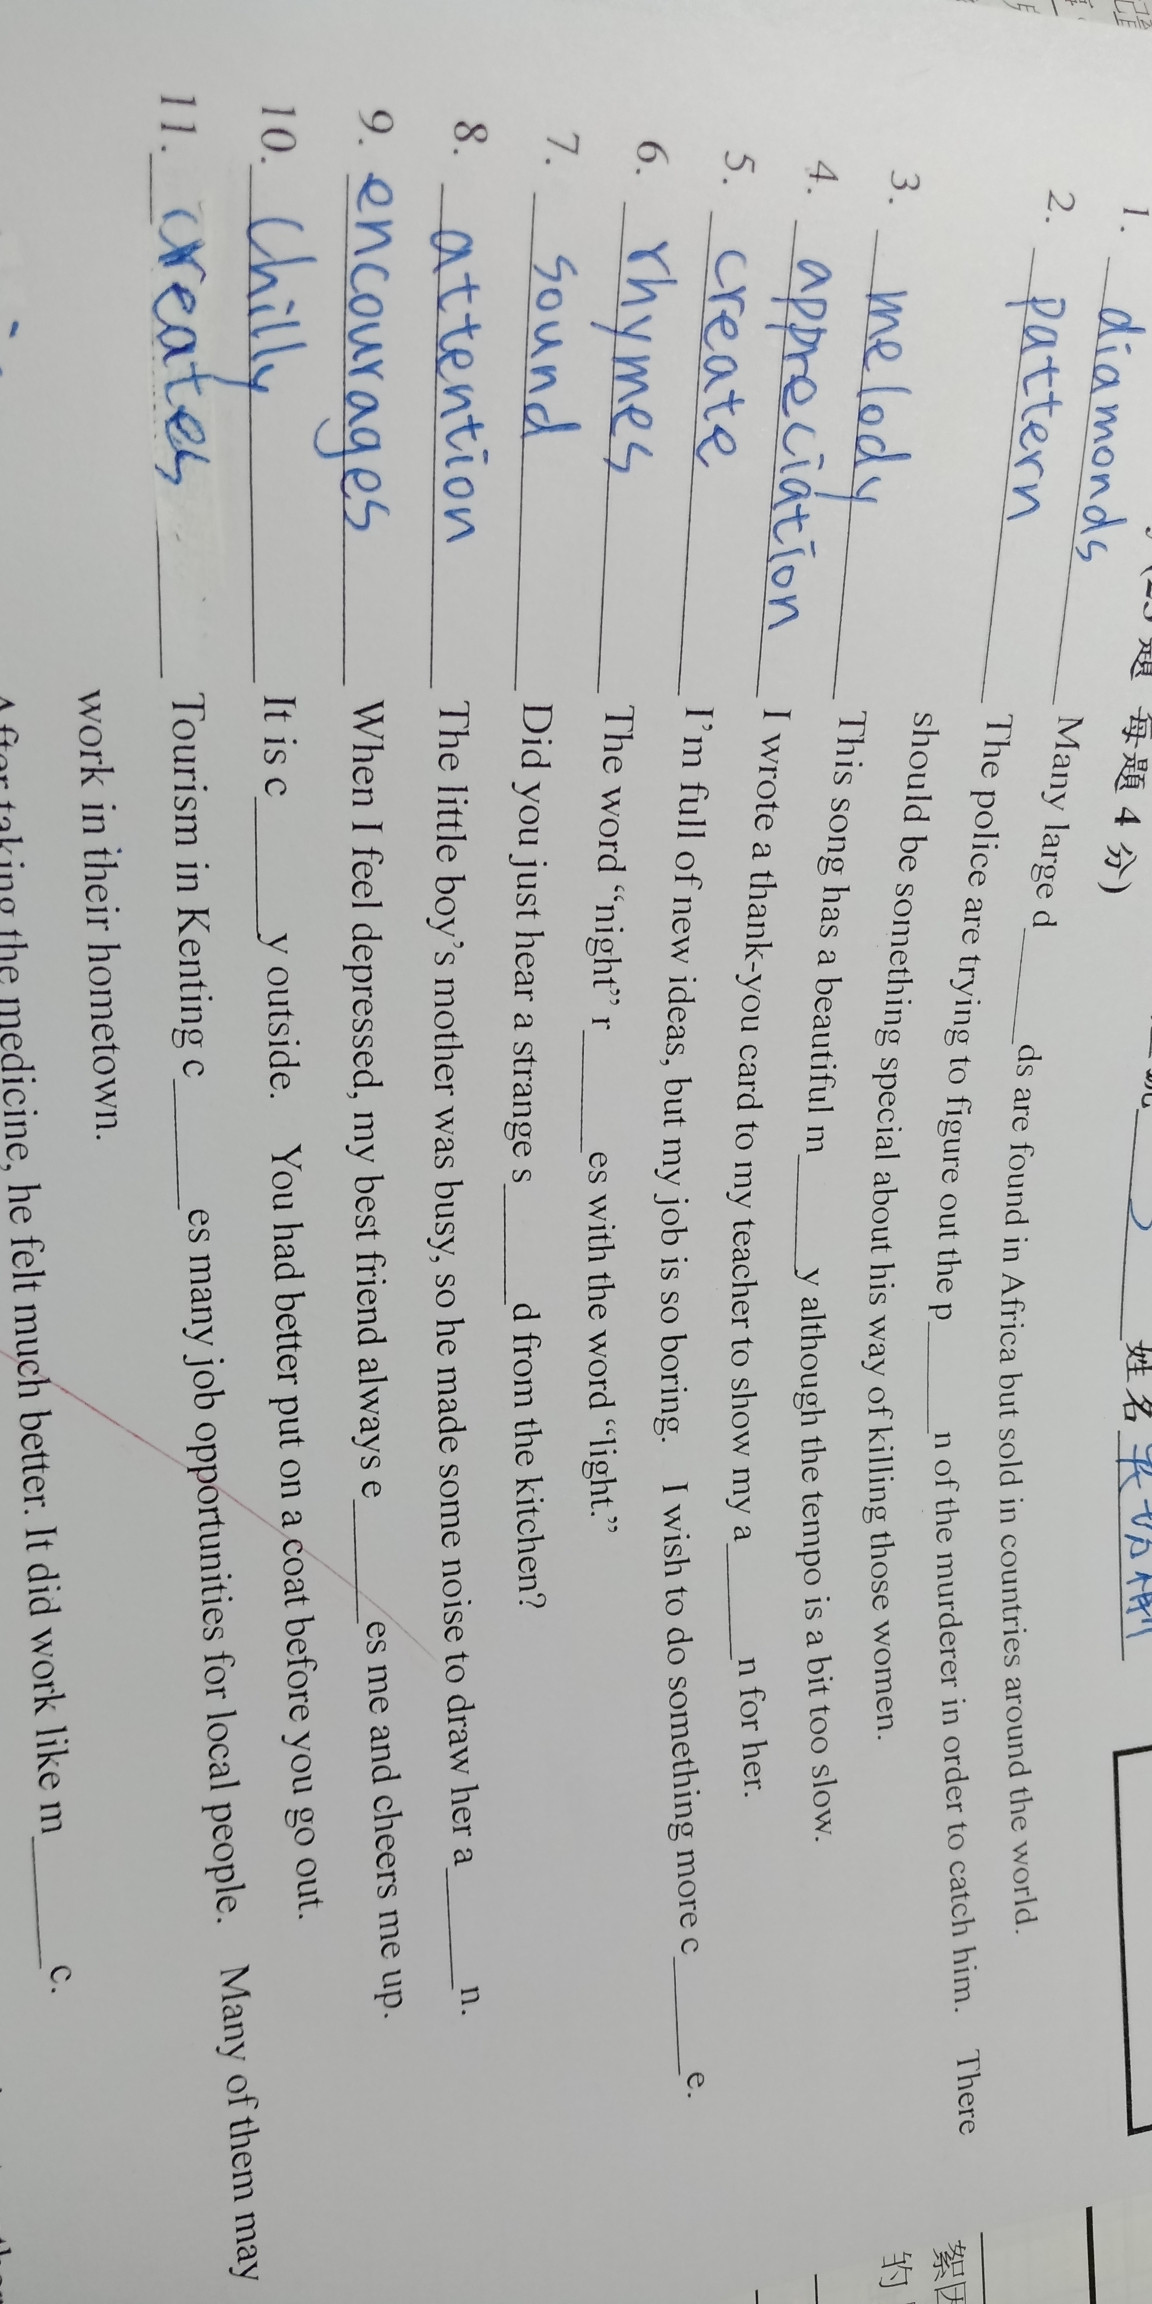 題 每題 4 分)
姓名
1. diamonds Many large d______ds are found in Africa but sold in countries around the world.
2. pattern The police are trying to figure out the p______n of the murderer in order to catch him. There
should be something special about his way of killing those women.
3. melody This song has a beautiful m______y although the tempo is a bit too slow.
4. appreciation I wrote a thank-you card to my teacher to show my a______n for her.
5. create I'm full of new ideas, but my job is so boring. I wish to do something more c______e.
6. rhymes The word “night” r______es with the word “light.”
7. sound Did you just hear a strange s______d from the kitchen?
8. attention The little boy's mother was busy, so he made some noise to draw her a______n.
9. encourages When I feel depressed, my best friend always e______es me and cheers me up.
10. chilly It is c______y outside. You had better put on a coat before you go out.
11. creates Tourism in Kenting c______es many job opportunities for local people. Many of them may
work in their hometown.
After taking the medicine, he felt much better. It did work like m______c.
的